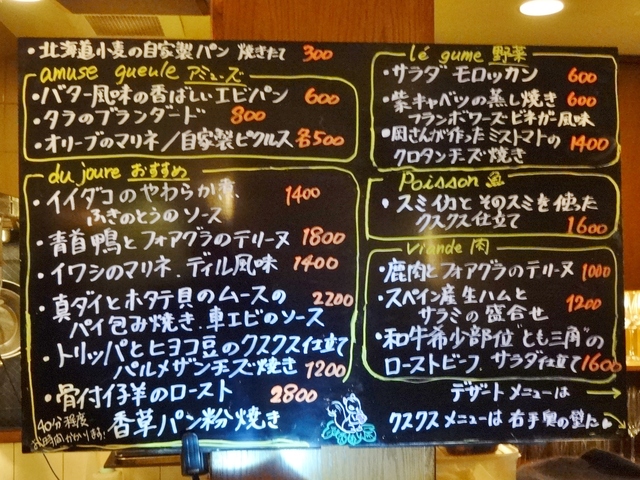 ・北海道小麦の自家製パン 焼きたて 300
amuse gueule アミューズ
・バター風味の香ばしいエビパン 600
・タラのブランダード 800
・オリーブのマリネ/自家製ピクルス 各500
du joure おすすめ
・イイダコのやわらか煮 1400
ふきのとうのソース
・青首鴨とフォアグラのテリーヌ 1800
・イワシのマリネ.ディル風味 1400
・真ダイとホタテ貝のムースの 2200
パイ包み焼き.車エビのソース
・トリッパとヒヨコ豆のクスクス仕立て
パルメザンチーズ焼き 1200
・骨付仔羊のロースト 2800
香草パン粉焼き
40分程度
お時間かかります!
lé gume 野菜
・サラダ モロッカン 600
・紫キャベツの蒸し焼き 600
フランボワーズビネガー風味
・岡さんが作ったミストマトの 1400
クロタンチーズ焼き
Poisson 魚
・スミイカとそのスミを使った
クスクス仕立て 1600
viande 肉
・鹿肉とフォアグラのテリーヌ 1000
・スペイン産生ハムと
サラミの盛合せ 1200
・和牛希少部位"とも三角"の
ローストビーフ.サラダ仕立て 1600
デザートメニューは →
クスクスメニューは右手奥の壁に